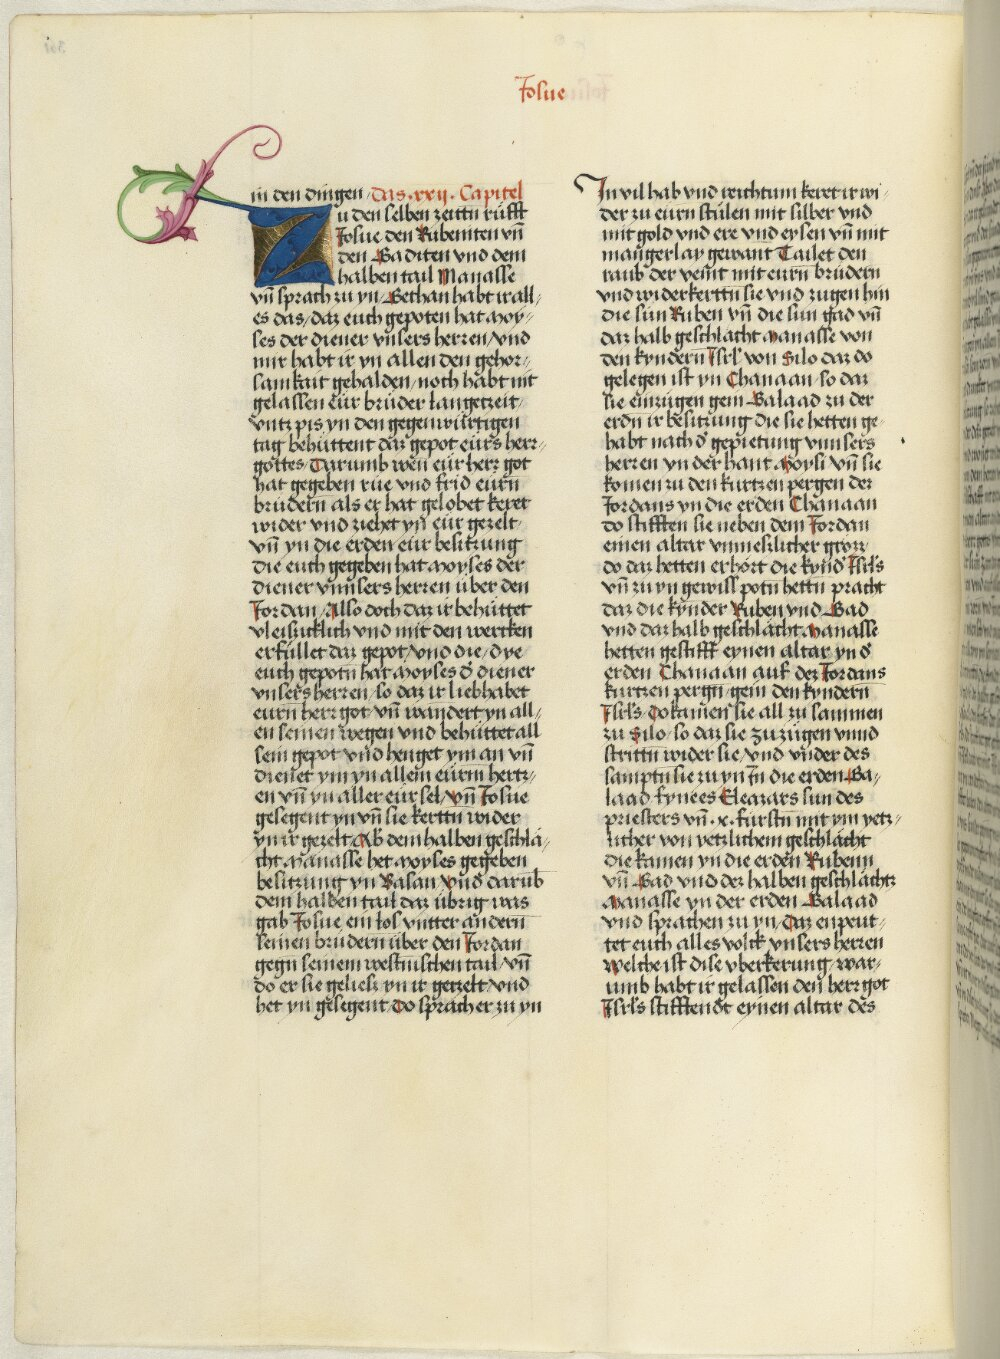 Josue
in den dingen / das .xxij. Capitel
Zu den selben zeittn rüfft
Josue den Rubeniten vn̄
den Gaditen vnd dem
halben tail Manasse
vn̄ sprach zu yn / Gethan habt ir all /
es das / daz euch gepoten hat moy /
ses der diener vnsers herren / vnd
mir habt ir yn allen den gehor /
samkait gehalden / noch habt nit
gelassen eür brüder langezeit /
vntz pis yn den gegenwürtigen
tag behüttent daz gepot eürs herr /
gottes / Darumb wen eür herr got
hat gegeben rüe vnd frid eürn
brüdern als er hat gelobet keret
wider vnd ziehet yn̄ eür gezelt /
vn̄ yn die erden eür besitzung
die euch gegeben hat moyses der
diener vnnsers herren über den
Jordan / Also doch daz ir behüttet
vleissiklich vnd mit den wercken
erfüllet daz gepot / vnd die / dye
euch gepotn hat moyses d̄ diener
vnsers herren / so daz ir liebhabet
eurn herr got vn̄ wandert yn all /
en seinen wegen vnd behüttet all
sein gepot vnd henget ym an vn̄
dienet ym yn allem eürm hertz /
en vn̄ yn aller eür sel / vn̄ Josue
gesegent yn vn̄ sie kertn wider
yn ir gezelt / Ab dem halben geschlä /
cht manasse het moyses gegeben
besitzung yn Basan / vnd darüb
dem halben tail daz übrig was
gab Josue ein los vntter andern
seinen brüdern über den Jordan
gegn seinem westnischen tail / vn̄
do er sie gelies yn ir gezelt / vnd
het yn gesegent / do sprach er zu yn
In vil hab vnd reichtum keret ir wi /
der zu eürn stülen mit silber vnd
mit gold vnd ere vnd eysen vn̄ mit
mangerlay gewant Tailet den
raub der veint mit eurn brüdern
vnd widerkerttn sie vnd zugen hin
die sün Ruben vn̄ die sün gad vn̄
daz halb geschlächt manasse von
den kyndern Isrl̄ von Silo daz do
gelegen ist yn Chanaan / so daz
sie einzügen gein Galaad zu der
erdn ir besitzung die sie hetten ge /
habt nach d̄ gepietung vnnsers
herren yn der hant moysi vn̄ sie
komen zu den kurtzen pergen der
Jordans yn die erden Chanaan
do stifften sie neben dem Jordan
einen altar vnmeslicher grözz
do daz hetten erhört die kynd̄ Isrl̄s
vn̄ zu yn gewiss potn hettn pracht
daz die kynder Ruben vnd Gad
vnd daz halb geschlächt manasse
hetten gestifft eynen altar yn d̄
erden Chanaan auf dez Jordans
kurtzen pergn / gein den kyndern
Isrl̄s / Do kamen sie all zu sammen
zu Silo / so daz sie zuzügen vnnd
strittn wider sie / vnd vnder des
samptn sie zu yn in die erden Ga /
laad fynees Eleazars sun des
priesters vn̄ .x. fürstn mit ym yetz /
licher von yetzlichem geschlächt
die kamen yn die erden Rubenn
vn̄ Gad vnd dez halben geschlächtz
manasse yn der erden Galaad
vnd sprachen zu yn / Daz enpeut /
tet euch alles volck vnsers herren
welche ist dise vberkerung / war /
umb habt ir gelassen den herr got
Isrl̄s stifftendt eynen altar des